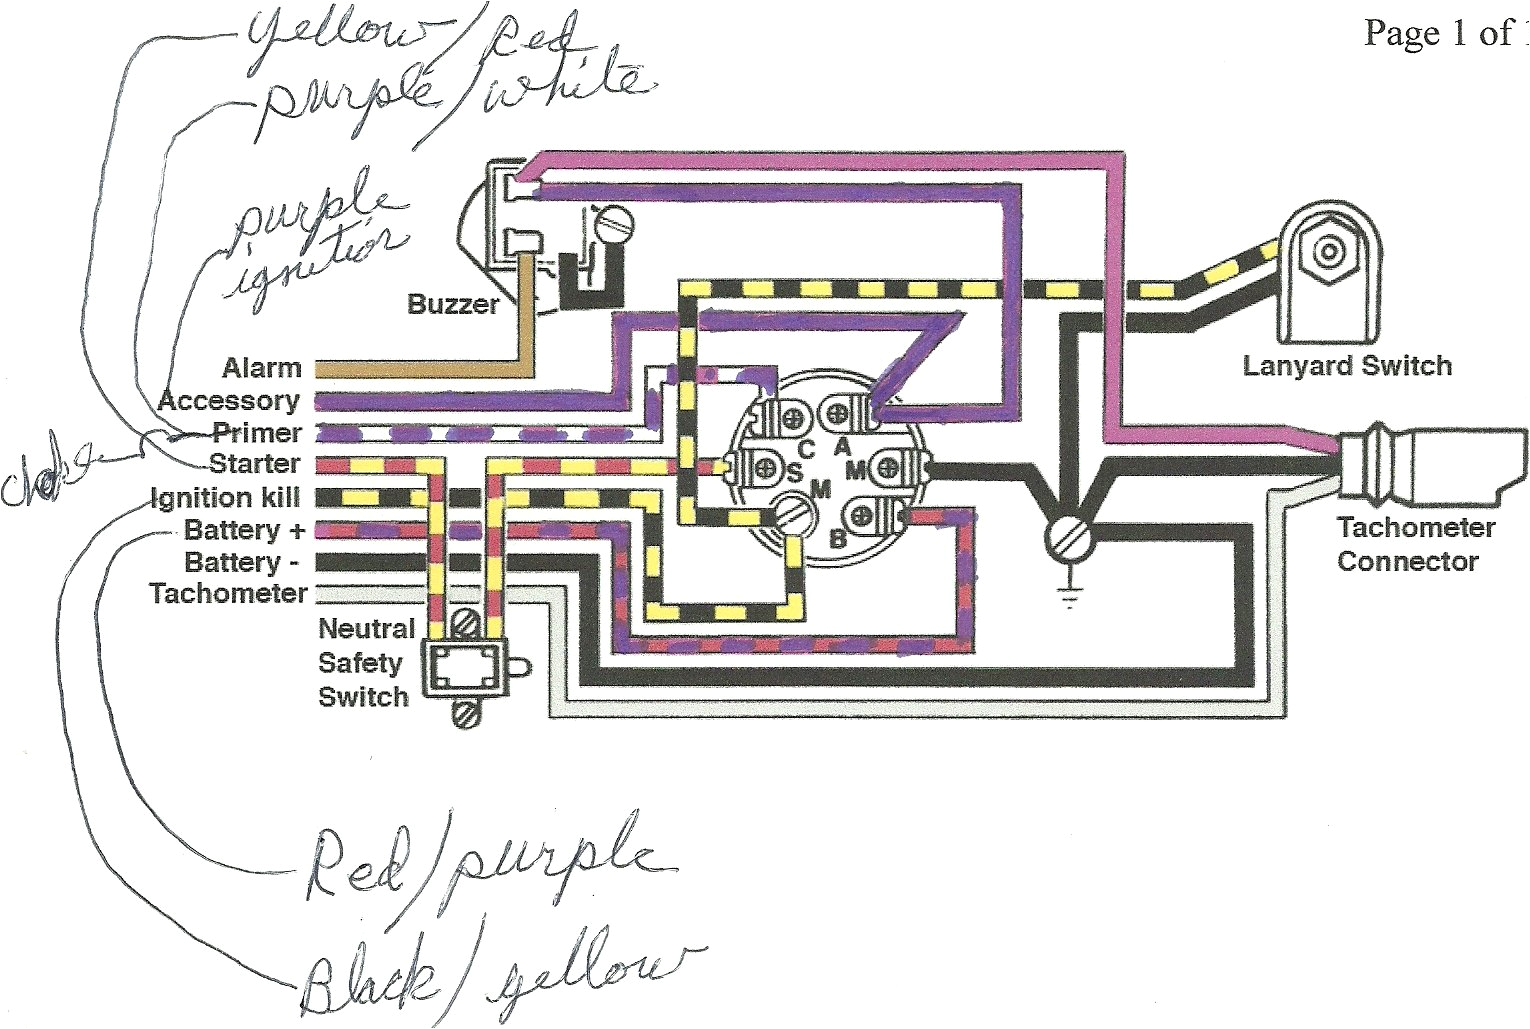 Page 1 of 1
yellow/Red
purple/white
purple
ignition
Buzzer
Lanyard Switch
Alarm
Accessory
Primer
choke
Starter
Ignition kill
Battery +
Battery -
Tachometer
C
A
S
M
M
B
Tachometer
Connector
Neutral
Safety
Switch
Red/purple
Black/yellow